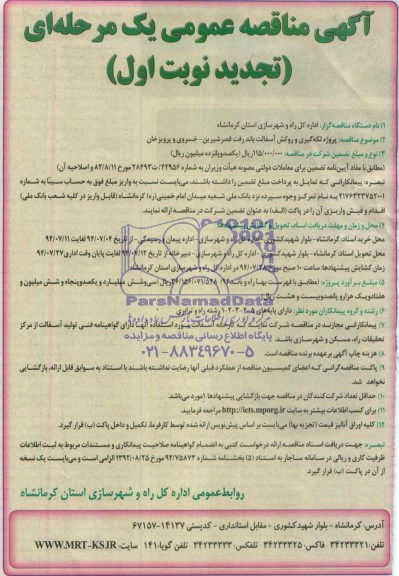 آگهی مناقصه عمومی یک مرحله‌ای
(تجدید نوبت اول)
۱) نام دستگاه مناقصه‌گزار: اداره کل راه و شهرسازی استان کرمانشاه
۲) موضوع مناقصه: پروژه لکه‌گیری و روکش آسفالت باند رفت قصرشیرین - خسروی و پرویزخان
۳) نوع و مبلغ تضمین شرکت در مناقصه: ۱۱۵/۰۰۰/۰۰۰ ریال (یکصدوپانزده میلیون ریال)
(مطابق با مفاد آیین‌نامه تضمین برای معاملات دولتی مصوبه هیأت وزیران به شماره ۴۲۹۵۶/ت۲۸۴۹۳ مورخ ۸۲/۸/۱۱ و اصلاحیه آن)
تبصره: پیمانکارانی که تمایل به پرداخت مبلغ تضمین را داشته باشند، می‌بایست نسبت به واریز مبلغ فوق به حساب سیبا به شماره
۲۱۷۶۴۳۲۷۵۲۰۰۱ به نام تمرکز وجوه سپرده نزد بانک ملی شعبه میدان امام خمینی(ره) کرمانشاه (قابل واریز در کلیه شعب بانک ملی)
اقدام و فیش واریزی آن را در پاکت (الف) به عنوان تضمین شرکت در مناقصه ارائه نمایند.
۴) محل و زمان و مهلت دریافت اسناد، تحویل و گشایش پیشنهادها:
محل خرید اسناد: کرمانشاه - بلوار شهیدکشوری - اداره کل راه و شهرسازی - اداره پیمان و رسیدگی - از تاریخ ۹۴/۰۷/۰۴ لغایت ۹۴/۰۷/۱۱
محل تحویل اسناد: کرمانشاه - بلوار شهیدکشوری - اداره کل راه و شهرسازی - دبیرخانه از تاریخ ۹۴/۰۷/۱۲ لغایت پایان وقت اداری ۹۴/۰۷/۲۷
زمان گشایش پیشنهادها: ساعت ۱۰ صبح مورخ ۹۴/۰۷/۲۸ در اداره کل راه و شهرسازی استان کرمانشاه
۵) مبلغ برآورد پروژه: (مطابق با فهرست بهاء راه و باند ۹۴)
۶) رشته و گروه پیمانکاران مورد نظر: دارای پایه‌های
۷) پیمانکارانی مجازند در مناقصه شرکت نمایند که کارخانه آسفالت مورد استفاده آنها دارای گواهینامه فنی تولید آسفالت از مرکز
تحقیقات راه، مسکن و شهرسازی باشد.
۸) هزینه چاپ آگهی برعهده برنده مناقصه است.
۹) پاکت مناقصه‌گرانی که اعضای کمیسیون مناقصه از عملکرد قبلی آنها رضایت نداشته باشند با استناد به سوابق قابل ارائه، بازگشایی
نخواهد شد.
۱۰) حداقل تعداد شرکت‌کنندگان در مناقصه جهت بازگشایی پیشنهادها ۱ مورد می‌باشد.
۱۱) برای کسب اطلاعات بیشتر به سایت http://iets.mporg.ir مراجعه فرمایید.
۱۲) کلیه اوراق آنالیز قیمت (تجزیه بها) می‌بایست بر اساس پیش‌نویس ارائه شده توسط کارفرما، تکمیل و داخل پاکت (ب) قرار گیرد.
تبصره: جهت دریافت اسناد مناقصه ارائه درخواست کتبی به انضمام گواهینامه صلاحیت پیمانکاری و مستندات مربوط به ثبت اطلاعات
ظرفیت کاری و ریالی در سامانه ساجار به استناد (۵) بخشنامه شماره ۹۲/۷۵۸۷۳ مورخ ۱۳۹۲/۰۸/۲۵ الزامی است و می‌بایست یک نسخه
از آن در پاکت (ب) قرار گیرد.
روابط عمومی اداره کل راه و شهرسازی استان کرمانشاه
آدرس: کرمانشاه - بلوار شهیدکشوری - مقابل استانداری - کدپستی ۱۴۱۳۷-۶۷۱۵۷
تلفن: ۳۴۲۳۳۳۲۱ فاکس: ۳۴۲۳۳۳۲۵ تلفکس: ۳۴۲۳۳۳۳۳ تلفن گویا: ۱۴۱ سایت: WWW.MRT-KS.IR
ParsNamadData
پایگاه اطلاع رسانی مناقصه و مزایده
۰۲۱-۸۸۳۴۹۶۷۰-۵